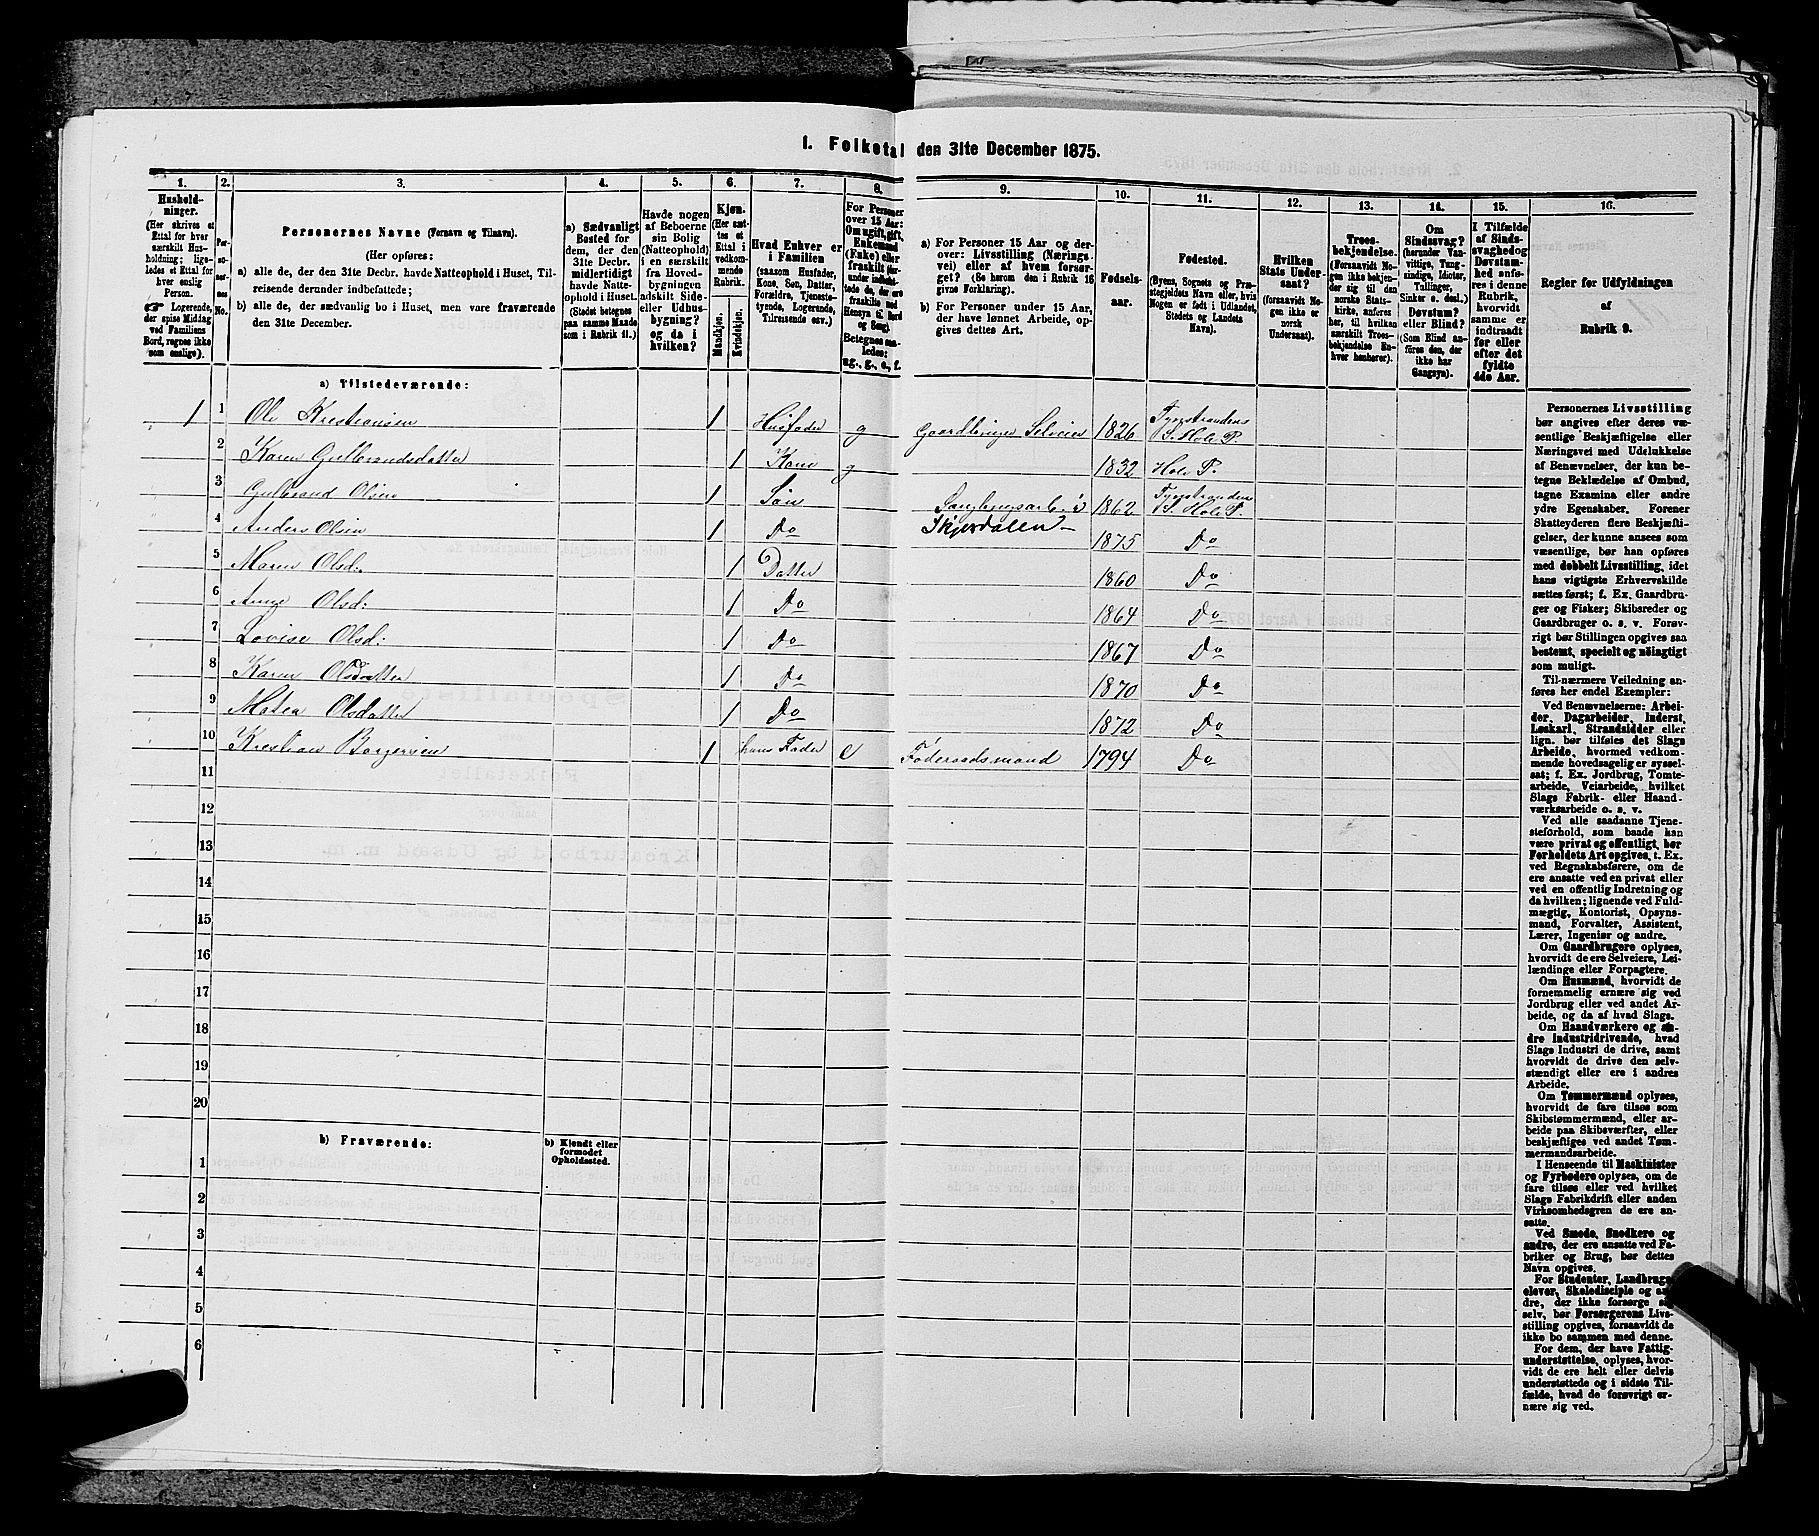 1. Folketal den 31te December 1875.
1.
2.
3.
4.
5.
6.
7.
8.
9.
10.
11.
12.
13.
14.
15.
16.
Hushold-
ninger.
(Her skrives et
Ettal for hver
særskilt Hus-
holdning; lige-
ledes et Ettal for
hver enslig
Person.
☞ Logerende,
der spise Middag
ved Familiens
Bord, regnes ikke
som enslige).
Per-
so-
ner-
nes
No.
Personernes Navne (Fornavn og Tilnavn).
(Her opføres:
a) alle de, der den 31te Decbr. havde Natteophold i Huset, Til-
reisende derunder indbefattede;
b) alle de, der sædvanlig bo i Huset, men vare fraværende
den 31te December.
a) Sædvanligt
Bosted for
dem, der den
31te Decbr.
midlertidigt
havde Natte-
ophold i Huset.
(Stedet betegnes
paa samme Maade
som i Rubrik 11.)
Havde nogen
af Beboerne
sin Bolig
(Natteophold)
i en særskilt
fra Hoved-
bygningen
adskilt Side-
eller Udhus-
bygning?
og da i
hvilken?
Kjøn.
(Her sæt-
tes et
Ettal i
vedkom-
mende
Rubrik.
Mandkjøn.
Kvindekjøn.
Hvad Enhver er
i Familien
(saasom Husfader,
Kone, Søn, Datter,
Forældre, Tjeneste-
tyende, Logerende,
Tilreisende osv.)
For Personer
over 15 Aar:
Om ugift, gift,
Enkemand
(Enke) eller
fraskilt
Betegnes saa-
ledes:
ug., g., e., f.
a) For Personer 15 Aar og der-
over: Livsstilling (Nærings-
vei) eller af hvem forsør-
get? (Se herom den i Rubrik 16
givne Forklaring).
b) For Personer under 15 Aar,
der have lønnet Arbeide, op-
gives dettes Art.
Fødsels-
aar.
Fødested.
(Byens, Sognets og Præ-
stegjeldets Navn eller, hvis
Nogen er født i Udlandet,
Stedets og Landets
Navn).
Hvilken
Stats Under-
saat?
(forsaavidt No-
gen ikke er
norsk
Undersaat).
Troes-
bekjendelse.
(Forsaavidt No-
gen ikke bekjen-
der sig til den
norske Stats-
kirke, anføres
her, til hvilken
særskilt Troes-
bekjendelse En-
hver henhører).
Om
Sindssvag?
(herunder Van-
vittige, Tung-
sindige, Idioter,
Tullinger,
Sinker o. desl.)
Døvstum?
eller Blind?
(Som Blind an-
føres den, der
ikke har
Gangsyn).
I Tilfælde
af Sinds-
svaghed og
Døvstum-
hed anfø-
res i denne
Rubrik,
hvorvidt
samme er
indtraadt
før eller
efter det
fyldte
4de Aar.
Regler for Udfyldningen
af
Rubrik 9.
a) Tilstedeværende:
1 1 Ole Kristiansen 1 Husfader g Gaardbruger Selveier 1826 Tyrstrandens S. Hole P.
2 Karen Gulbrandsdatter 1 Kone g 1832 Hole P.
3 Gulbrand Olsen 1 Søn 1862 Tyrstrandens S. Hole P.
4 Anders Olsen 1 Do Skjerdalen 1875 Do
5 Maren Olsd: 1 Datter 1860 Do
6 Anne Olsd: 1 Do 1864 Do
7 Lovise Olsd: 1 Do 1867 Do
8 Karen Olsdatter 1 Do 1870 Do
9 Matea Olsdatter 1 Do 1872 Do
10 Kristian Borgersen 1 hans Fader e Føderaadsmand 1794 Do
11
12
13
14
15
16
17
18
19
20
b) Fraværende:
b) Kjendt eller
formodet
Opholdssted.
1
2
3
4
5
6
Personernes Livsstilling
bør angives efter deres væ-
sentlige Beskjæftigelse eller
Næringsvei med Udelukkelse
af Benævnelser, der kun be-
tegne Beklædelse af Ombud,
tagne Examina eller andre
ydre Egenskaber. Forener
Skatteyderen flere Beskjæfti-
gelser, der kunne ansees som
væsentlige, bør han opføres
med dobbelt Livsstilling, idet
hans vigtigste Erhvervskilde
sættes først; f. Ex. Gaardbru-
ger og Fisker; Skibsreder og
Gaardbruger o. s. v. Forøv-
rigt bør Stillingen opgives saa
bestemt, specielt og nøiagtigt
som muligt.
Til nærmere Veiledning an-
føres her endel Exempler:
Ved Benævnelserne: Arbei-
der, Dagarbeider, Inderst,
Løskarl, Strandsidder eller
lign. bør tilføies det Slags
Arbeide, hvormed vedkom-
mende hovedsagelig er syssel-
sat; f. Ex. Jordbrug, Tomte-
arbeide, Veiarbeide, hvilket
Slags Fabrik- eller Haand-
værksarbeide o. s. v.
Ved alle saadanne Tjene-
steforhold, som baade kan
være privat og offentligt, bør
Forholdets Art opgives, t. Ex.
ved Regnskabsførere, om de
ere ansatte ved en privat eller
ved en offentlig Indretning og
da hvilken; lignende ved Fuld-
mægtig, Kontorist, Opsyns-
mand, Forvalter, Assistent,
Lærer, Ingeniør og andre.
Om Gaardbrugere oplyses,
hvorvidt de ere Selveiere, Lei-
lændinge eller Forpagtere.
Om Husmænd, hvorvidt de
fornemmelig ernære sig ved
Jordbrug eller ved andet Ar-
beide, og da af hvad Slags.
Om Haandværkere og an-
dre Industridrivende, hvad
Slags Industri de drive, samt
hvorvidt de drive den selv-
stændigt eller ere i andres
Arbeide.
Om Tømmermænd oplyses,
hvorvidt de fare tilsøs som
Skibstømmermænd, eller ar-
beide paa Skibsværfter, eller
beskjæftiges ved andet Tøm-
mermandsarbeide.
I Henseende til Maskinister
og Fyrbødere oplyses, om de
fare tilsøs eller ved hvilket
Slags Fabrikdrift eller anden
Virksomhedsgren de ere an-
satte.
Ved Smede, Snedkere og
andre, der ere ansatte ved Fa-
briker og Brug, bør dettes
Navn opgives.
For Studenter, Landbrugs-
elever, Skoledisciple og an-
dre, der ikke forsørge sig
selv, bør Forsørgerens Livs-
stilling opgives, forsaavidt de
ikke bo sammen med denne.
For dem, der have Fattig-
understøttelse, oplyses, hvor-
vidt de ere helt eller delvis
understøttede og i sidste Til-
fælde, hvad de forøvrigt er-
nære sig ved.